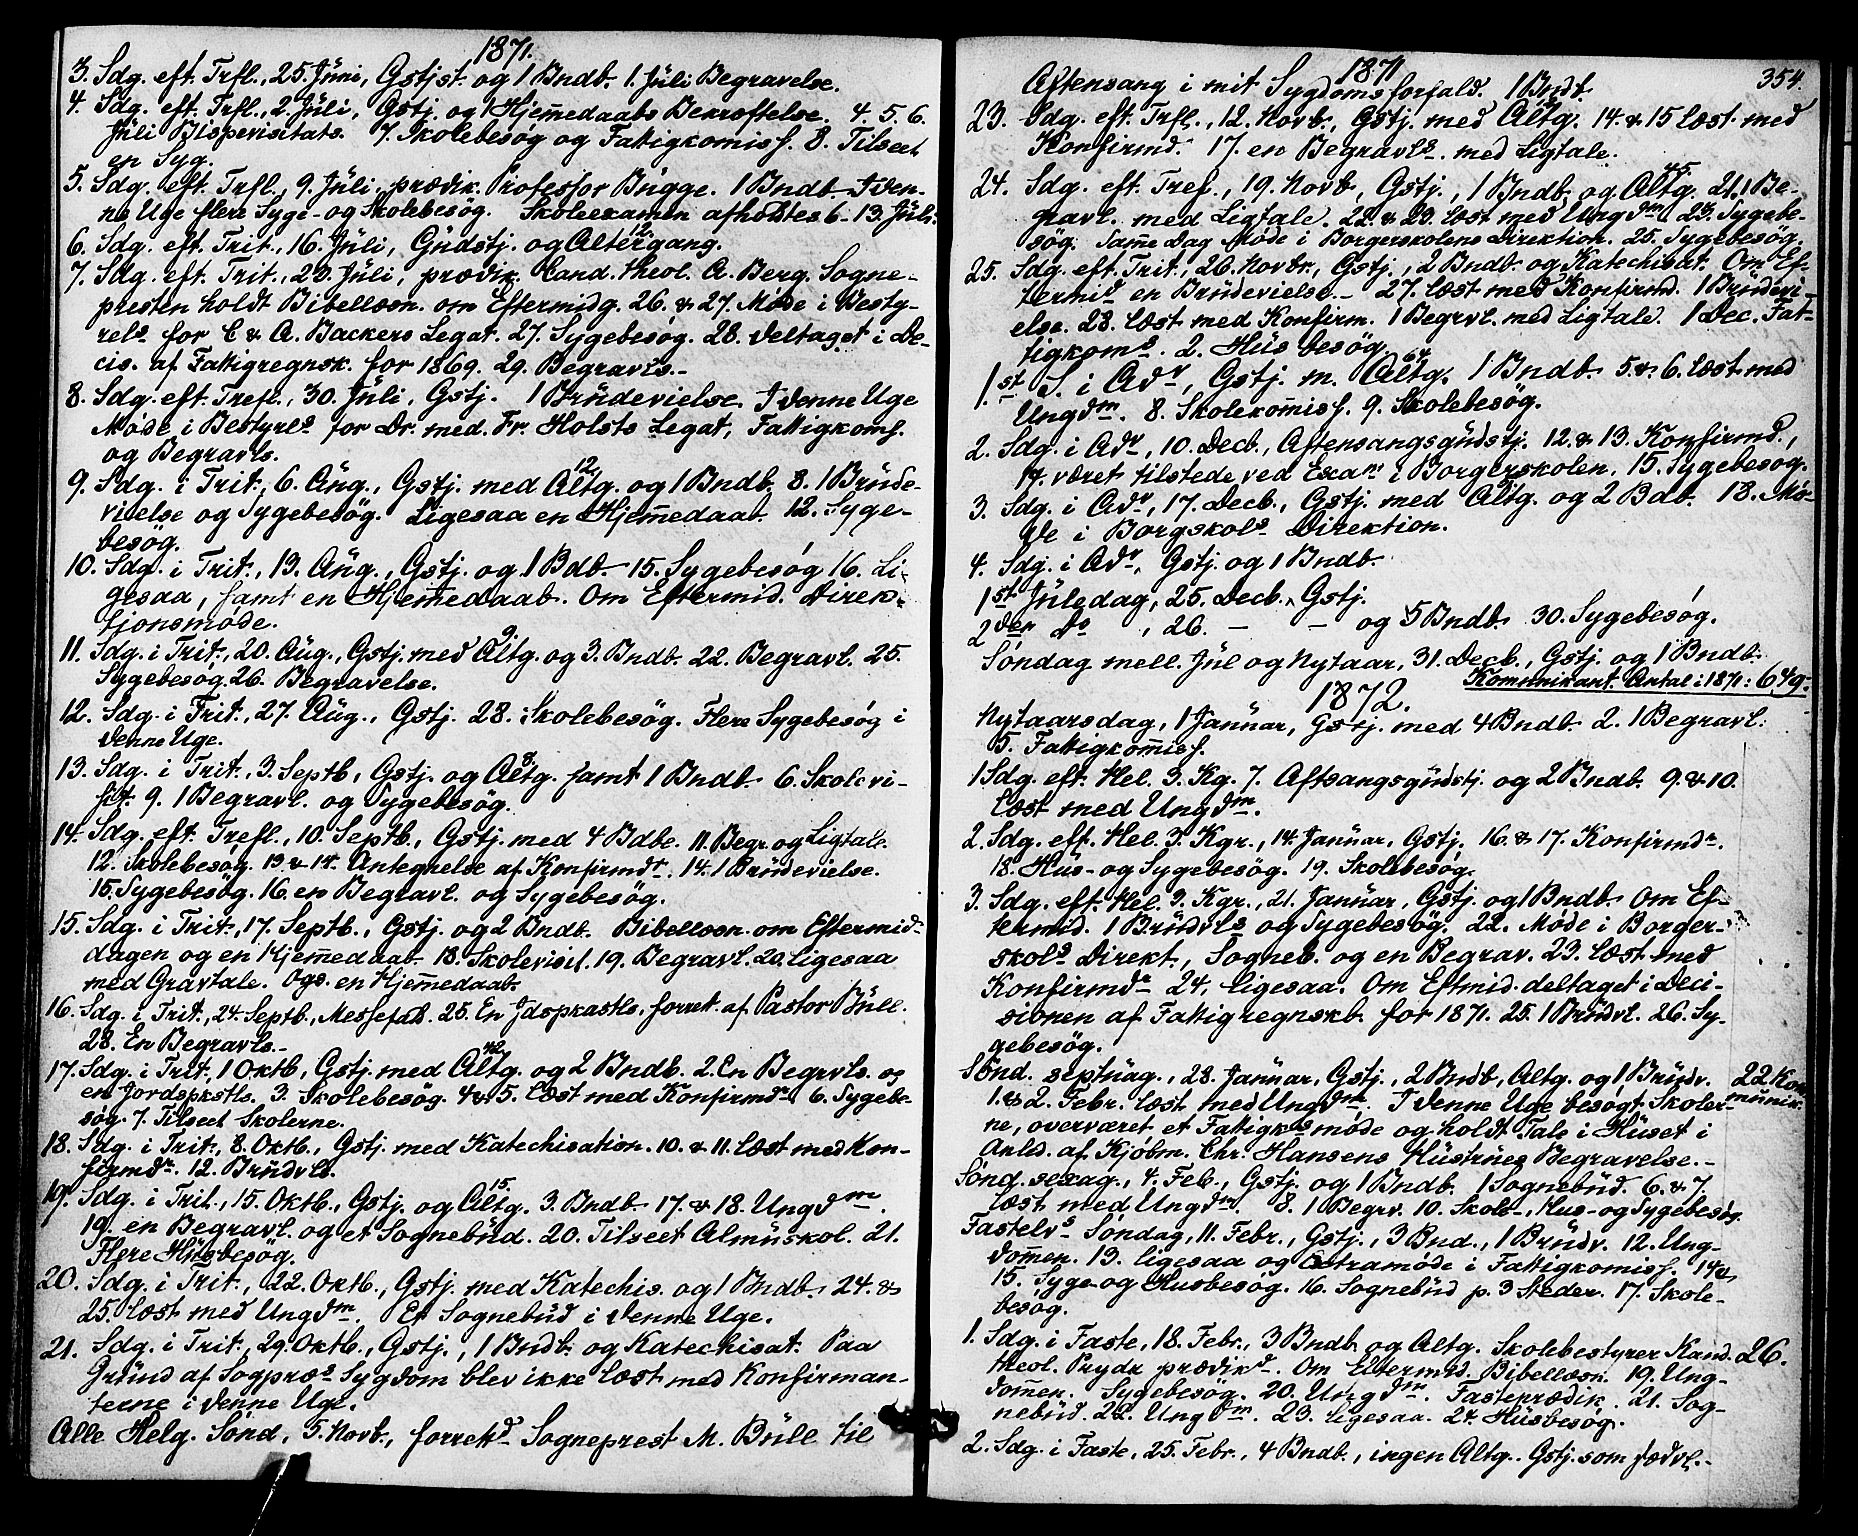 1871.
3. Sdg. eft. Trfl., 25. Jüni, Gstjst. og 1 Bndb. 1. Jüli Begravelse.
4. Sdg. eft. Trfl., 2. Jüli, Gstj. og 1 Hjem̄edaabs Bekræftelse. 4. 5. 6.
Jüli Bispevisitats. 7. Skolebesøg og Fattigkomiss. 8. Tilseet
en Syg.
5. Sdg. eft. Trfl., 9. Jüli, prædik. Professor Bügge. 1 Bndb. I den-
ne Uge flere Syge- og Skolebesøg. Skoleexamen afholdtes 6-13. Jüli.
12
6. Sdg. eft. Trit., 16. Jüli, Güdstj. og Altergang.
7. Sdg. eft. Trit., 23. Jüli, prædik. Cand. theol. A. Berg. Sogne-
presten holdt Bibellæsn. om Eftermidg. 26. & 27. Møde i Besty-
rels for C & A. Backers Legat. 27. Sygebesøg. 28. deltaget i De-
cis. af Fattigregnsk. for 1869. 29. Begravls.-
8. Sdg. eft. Trefl., 30. Jüli, Gstj. 1 Brüdevielse. I denne Uge
Møde i Bestyrels for Dr. med. Fr. Holsts Legat, Fattigkoms.
og Begravls.
12
9. Sdg. i Trit., 6. Aüg., Gstj. med Altg. og 1 Bndb. 8. 1 Brüde-
vielse og Sygebesøg. Ligesaa en Hjem̄edaab. 12. Syge-
besøg.
10. Sdg. i Trit., 13. Aüg., Gstj. og 1 Bdb. 15. Sygebesøg 16. Li-
gesaa, samt en Hjem̄edaab. Om Eftermid. Direk-
tjonsmøde.
9
11. Sdg. i Trit., 20. Aüg., Gstj. med Altg. og 3. Bndb. 22. Begravl. 25.
Sygebesøg. 26. Begravelse.
12. Sdg. i Trit., 27. Aüg., Gstj. 28. Skolebesøg. Flere Sygebesøg i
denne Uge.
8
13. Sdg. i Trit., 3. Septb., Gstj. og Altg. samt 1 Bndb. 6. Skolevi-
sit. 9. 1 Begravl. og Sygebesøg.
14. Sdg. eft. Trefl., 10. Septb., Gstj. med 4 Bdbe. 11. Begr. og Ligtale.
12. Skolebesøg. 13 & 14. Antegnelse af Konfirmdr. 14. 1 Brüdevielse.
15. Sygebesøg. 16. en Begravl. og Sygebesøg.
15. Sdg. i Trit., 17. Septb., Gstj. og 2 Bndb. Bibellæsn. om Eftermid-
dagen og en Hjem̄edaab. 18. Skolevisit. 19. Begravl. 20. Ligesaa
med Gravtale. Ogs. en Hjem̄edaab.
16. Sdg. i Trit., 24. Septb., Messefald. 25. En Jdspkastls. forret. af Pastor Büll.
28. En Begravls.-
42
17. Sdg. i Trit., 1 Oktb., Gstj. med Altg. og 2 Bndb. 2. En Begrvls. og
en Jordspkstls. 3. Skolebesøg. 4 & 5. læst med Konfirmdr. 6. Sygebe-
søg. 7. Tilseet Skolerne.
18. Sdg. i Trit., 8. Oktb., Gstj. med Katechisation. 10. & 11. læst med Kon-
firmdr. 12. Brüdvls.
15.
19. Sdg. i Trit., 15. Oktb., Gstj. og Altg. 3. Bndb. 17. & 18. Ungdm.
19. en Begravl. og et Sognebüd. 20. Tilseet Almüskol. 21.
Flere Hüsbesøg.
20. Sdg. i Trit., 22. Oktb., Gstj. med Katechis. og 1 Bndb. 24. &
25. læst med Ungdm. Et Sognebüd i denne Uge.
21. Sdg. i Trit., 29. Oktb., Gstj., 1 Bndb. og Katechisat. Paa
Gründ af Sogpræs Sygdom blev ikke læst med Konfirman-
terne i denne Uge.
Alle Helg. Sønd., 5. Novb., forretd Sogneprest M. Büll til
1871
354.
Aftensang i mit Sygdomsforfald. 1 Bndb.
23. Sdg. eft. Trfl., 12. Novb., Gstj. med Altg. 14. & 15 læst med
Konfirmd. 17. en Begravls. med Ligtale.
45.
24. Sdg. eft. Tref., 19. Novb., Gstj., 1 Bndb. og Altg. 21. 1 Be-
gravl. med Ligtale. 22. & 23. læst med Ungdm. 23. Sygebe-
søg. Sam̄e Dag Møde i Borgerskolens Direktion. 25. Sygebesøg.
25. Sdg. eft. Trit., 26. Novbr., Gstj., 2 Bndb. og Katechisat. Om Ef-
termid en Brüdevielse.- 27. læst med Konfirmd. 1 Brüdevi-
else. 28. læst med Konfirm. 1 Begrvl. med Ligtale. 1 Dec. Fat-
tigkoms. 2. Hüsbesøg.
64
1.st S. i Adv, Gstj. m. Altg. 1 Bndb. 5. & 6. læst med
Ungdm. 8. Skolekom̄iss. 9. Skolebesøg.
2. Sdg. i Adv, 10. Decb., Aftensangsgüdstj. 12. & 13. Konfirmd.,
14. været tilstede ved Exam i Borgerskolen. 15. Sygebesøg.
3. Sdg. i Adv, 17. Decb., Gstj. med Altg. og 2 Bdb. 18. Mø-
de i Borgskols Direktion.
4. Sdg. i Adv, Gstj. og 1 Bndb.
1st Jüledag, 25. Decb., Gstj.
2den Do, 26. - - og 5 Bndb. 30. Sygebesøg.
Søndag mell. Jül og Nytaar, 31. Decb., Gstj. og 1 Bndb.
Komünikant. Antal i 1871: 649.
1872.
Nytaarsdag, 1 Janüar, Gstj. med 4 Bndb. 2. 1 Begravl.
5. Fattigkom̄iss.
1 Sdg. eft. Hel. 3. Kg. 7. Aftsangsgüdstj. og 2 Bndb. 9. & 10.
læst med Ungdm.
2. Sdg. eft. Hel. 3. Kgr., 14. Janüar, Gstj. 16. & 17. Konfirmdr.
18. Hüs- og Sygebesøg. 19. Skolebesøg.
3. Sdg. eft. Hel. 3. Kgr., 21. Janüar, Gstj. og 1 Bndb. Om Ef-
termid. 1 Brüdvls og Sygebesøg. 22. Møde i Borger-
skols Direkt., Sogneb. og en Begrav. 23. læst med
Konfirmdr 24. ligesaa. Om Eftmid. deltaget i Deci-
sionen af Fattigregnskb. for 1871. 25. 1 Brüdvl. 26. Sy-
gebesøg.
Sønd. septüag., 28. Janüar, Gstj., 2 Bndb, Altg. og 1 Brüdv. 22 Kom
1. & 2. Febr. læst med Ungdm. I denne Uge besøgt Skoler- münik.
ne, overværet et Fatigks møde og holdt Tale i Hüset i
Anled. af Kjøbm. Chr. Hansens Hüstrües Begravelse.-
Sønd. sexag., 4. Feb., Gstj. og 1 Bndb. 1 Sognebüd. 6. & 7.
læst med Ungdm. 8. 1 Begrv. 10. Skole-, Hüs- og Sygebesøg.
Fastelvs Søndag, 11. Febr., Gstj., 3 Bnd., 1 Brüdv. 12. Ung-
dom̄en. 13. ligesaa og Extramøde i Fattigkomiss. 14 &
15. Syge- og Hüsbesøg. 16. Sognebüd p. 3 Steder. 17. Skole-
besøg.
1. Sdg. i Faste, 18. Febr., 3 Bndb. og Altg. Skolebestyrer Kand. 26.
theol. Prydz prædikd. Om Eftermid. Bibellæsn. 19. Ung-
dom̄en. Sygebesøg. 20. Ungdm. Fasteprædik. 21. Sog-
nebüd. 22. Ungdm. 23. Ligesaa. 24. Hüsbesøg.
2. Sdg. i Faste, 25. Febr., 4 Bndb., ingen Altg.. Gstj. som sædvl.-